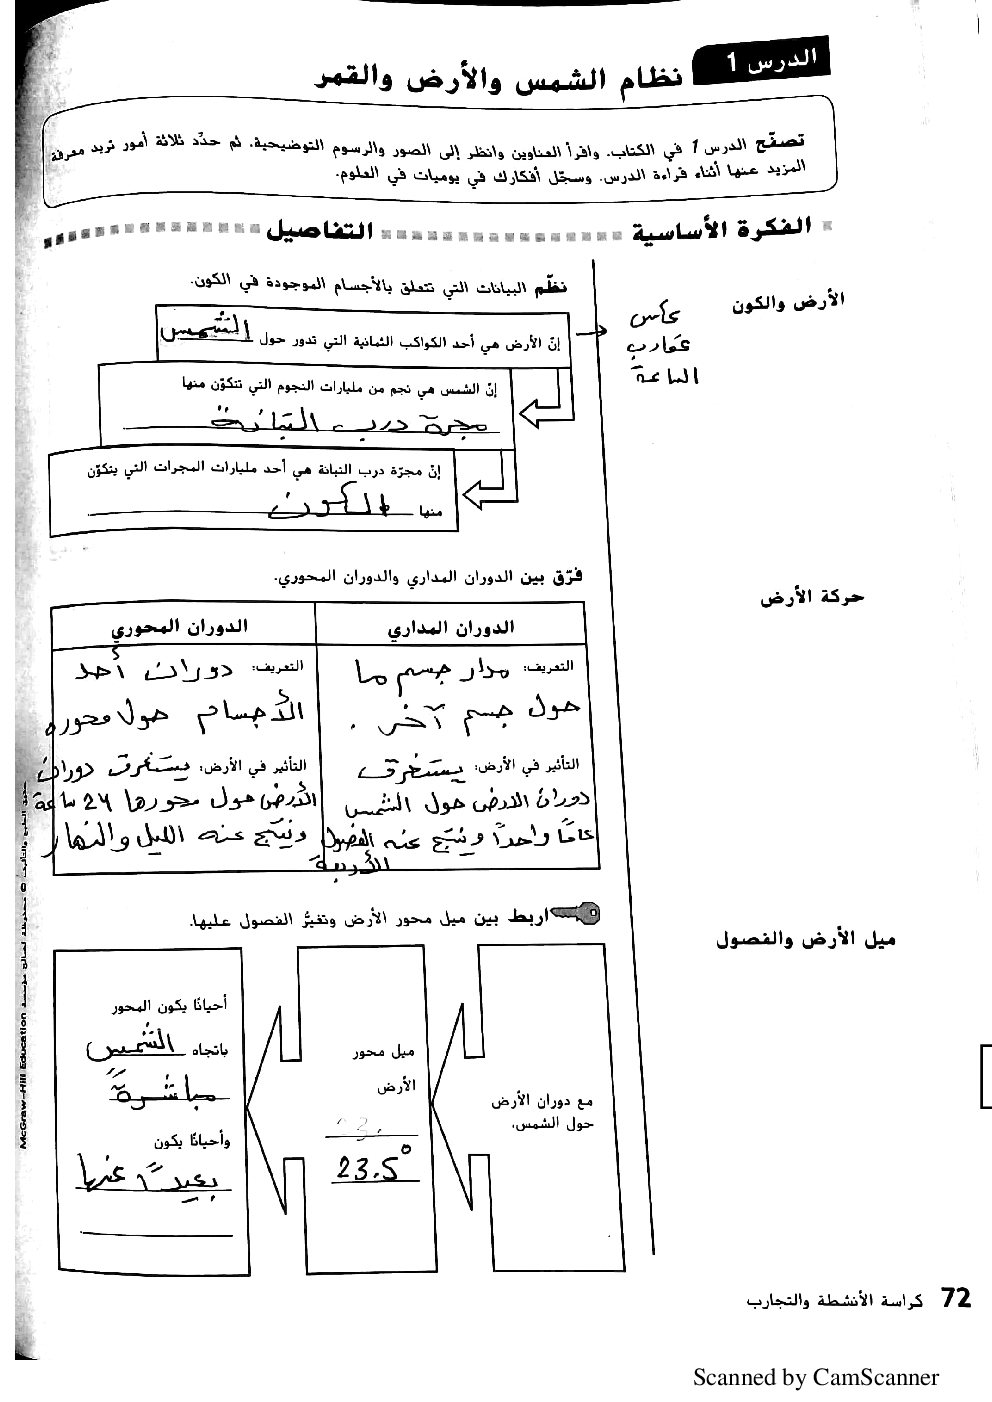 الدرس 1
نظام الشمس والأرض والقمر
تصفّح الدرس 1 في الكتاب. واقرأ العناوين وانظر إلى الصور والرسوم التوضيحية. ثم حدِّد ثلاثة أمور تريد معرفة
المزيد عنها أثناء قراءة الدرس. وسجّل أفكارك في يوميات في العلوم.
الفكرة الأساسية
التفاصيل
الأرض والكون
عكس
عقارب
الساعة
نظّم البيانات التي تتعلق بالأجسام الموجودة في الكون.
إنّ الأرض هي أحد الكواكب الثمانية التي تدور حول الشمس
إنّ الشمس هي نجم من مليارات النجوم التي تتكوّن منها
مجرة درب التبانة
إنّ مجرّة درب التبانة هي أحد مليارات المجرات التي يتكوّن
منها الكون
حركة الأرض
فرّق بين الدوران المداري والدوران المحوري.
الدوران المداري
التعريف: مدار جسم ما
حول جسم آخر.
التأثير في الأرض: يستغرق
دوران الارض حول الشمس
عامًا واحدًا وينتج عنه الفصول
الأربعة
الدوران المحوري
التعريف: دوران أحد
الأجسام حول محوره
التأثير في الأرض: يستغرق دوران
الأرض حول محورها 24 ساعة
وينتج عنه الليل والنهار
ميل الأرض والفصول
اربط بين ميل محور الأرض وتغيُّر الفصول عليها.
مع دوران الأرض
حول الشمس،
ميل محور
الأرض
23.5°
أحيانًا يكون المحور
باتجاه الشمس
مباشرةً
وأحيانًا يكون
بعيدًا عنها
McGraw-Hill Education
72 كراسة الأنشطة والتجارب
Scanned by CamScanner